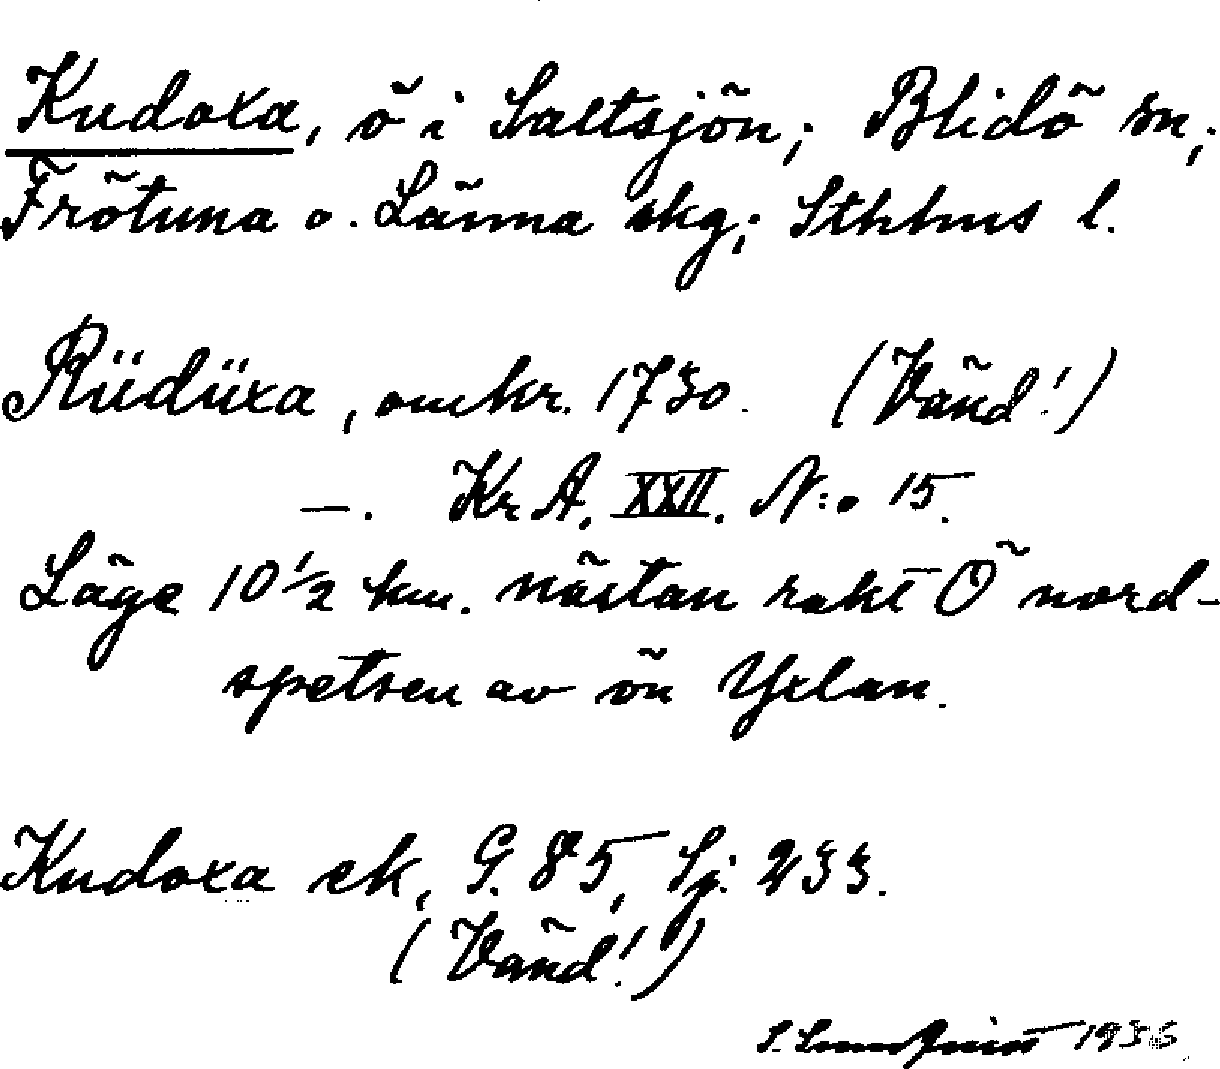 Kudoxa, ö i Saltsjön; Blidö sn;
Frötuna o. Länna skg; Sthlms l.
Rüdüxa, omkr. 1730. (Vänd!)
—. Kr A. XXII. N:o 15.
Läge 10 1/2 km. nästan rakt Ö nord-
spetsen av ön Yxlan.
Kudoxa ek, G. 85, Sj. 233.
(Vänd!)
S. Lundqvist 1936